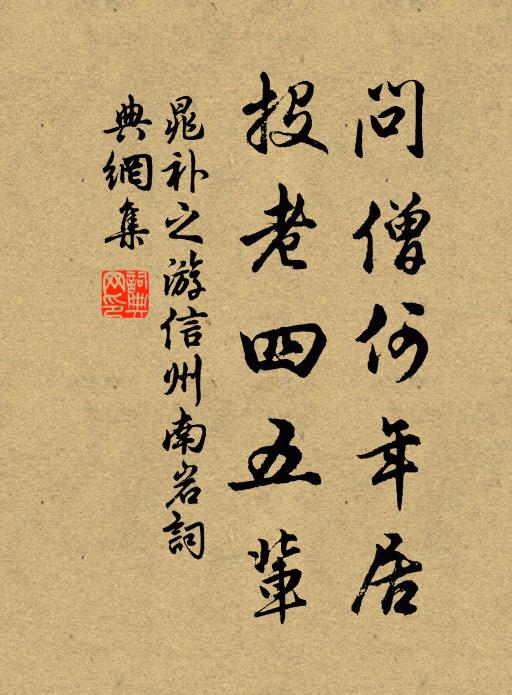 問僧何年居
投老四五輩
晁补之游信州南岩詞
典網集
詞典
网印